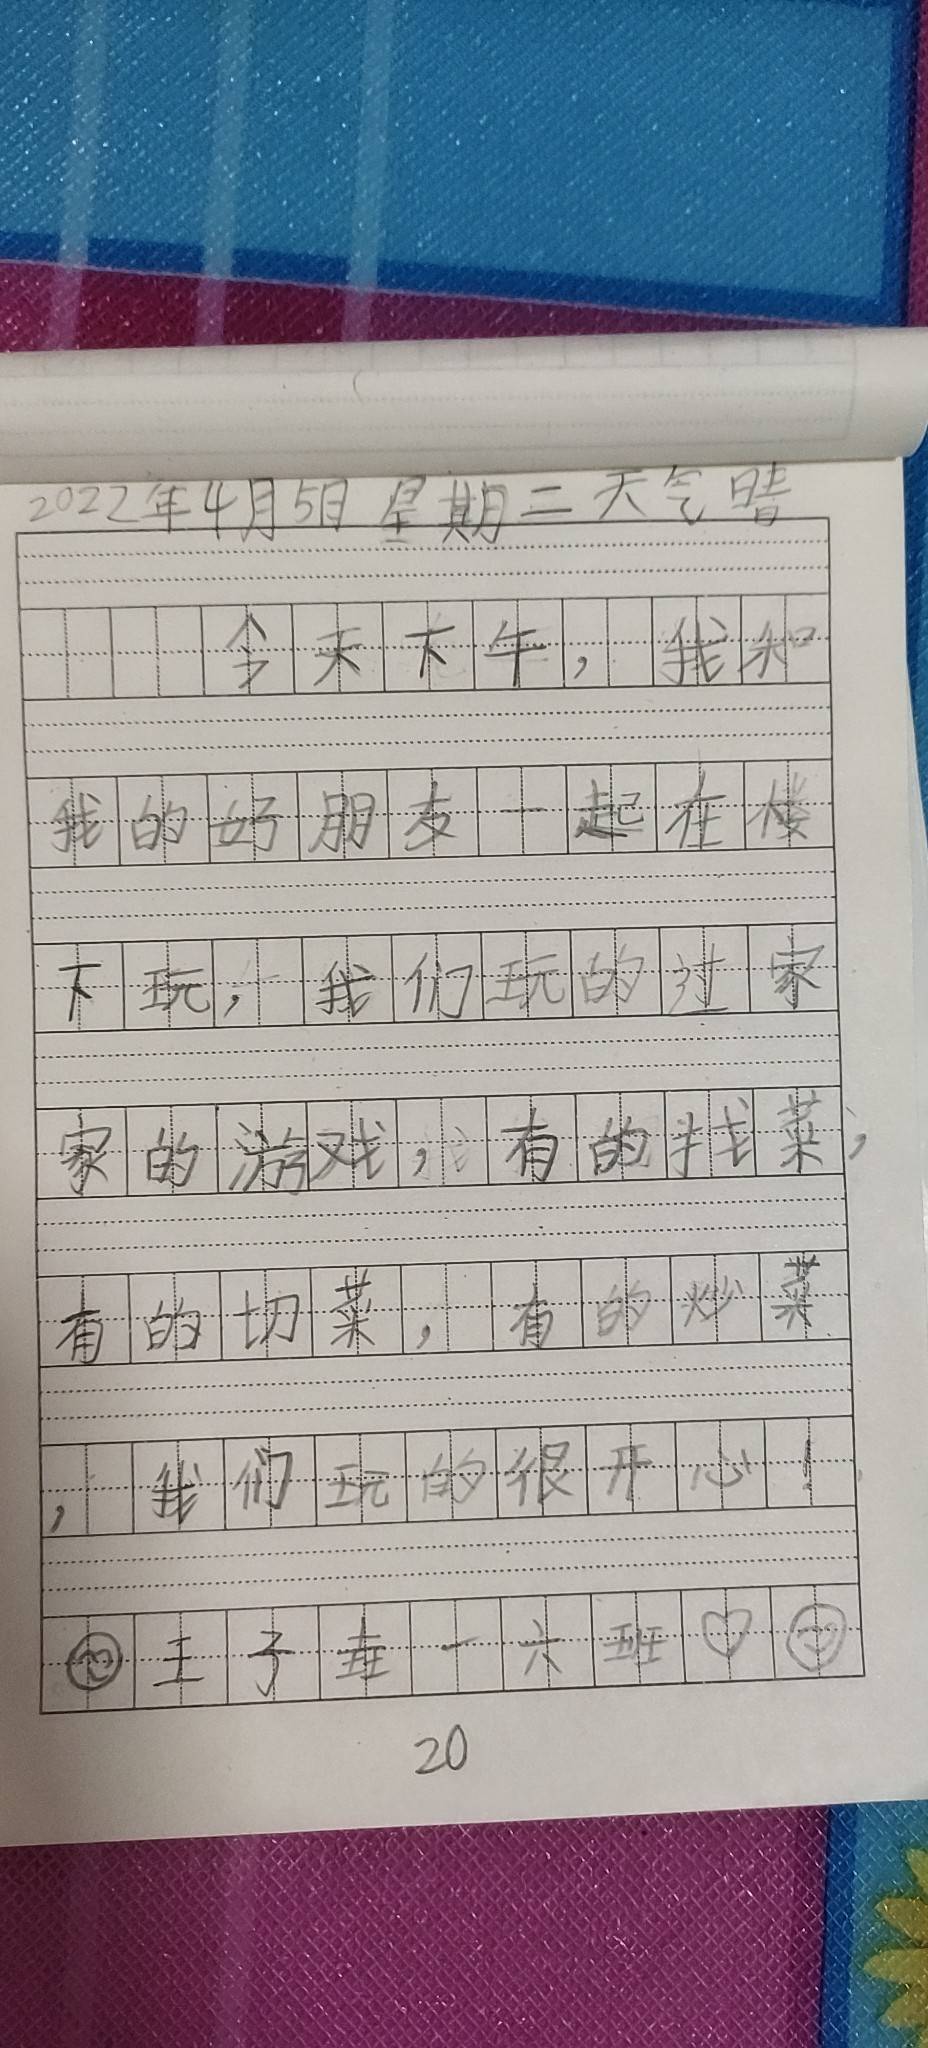 2022年4月5日 星期二 天气晴
今天下午，我和
我的好朋友一起在楼
下玩，我们玩的过家
家的游戏，有的找菜，
有的切菜，有的炒菜
，我们玩的很开心！
王子垚一六班
20